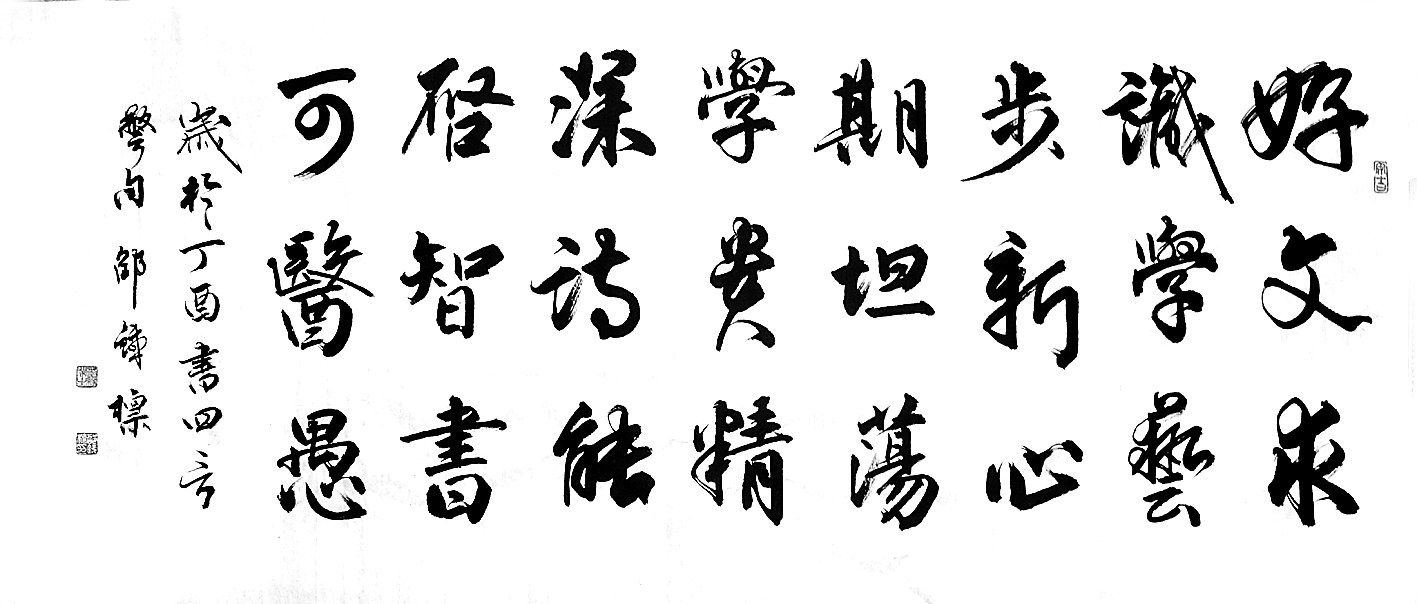 好文求
識學藝
步新心
期坦蕩
學貴精
深詩能
啓智書
可醫愚
歲於丁酉書四言
警句 邵鍊標